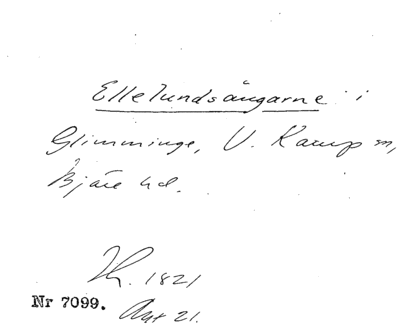 Ellelundsängarne i
Glimminge, V. Karup sn,
Bjäre hd.
1821
Nr 7099. Akt 21.